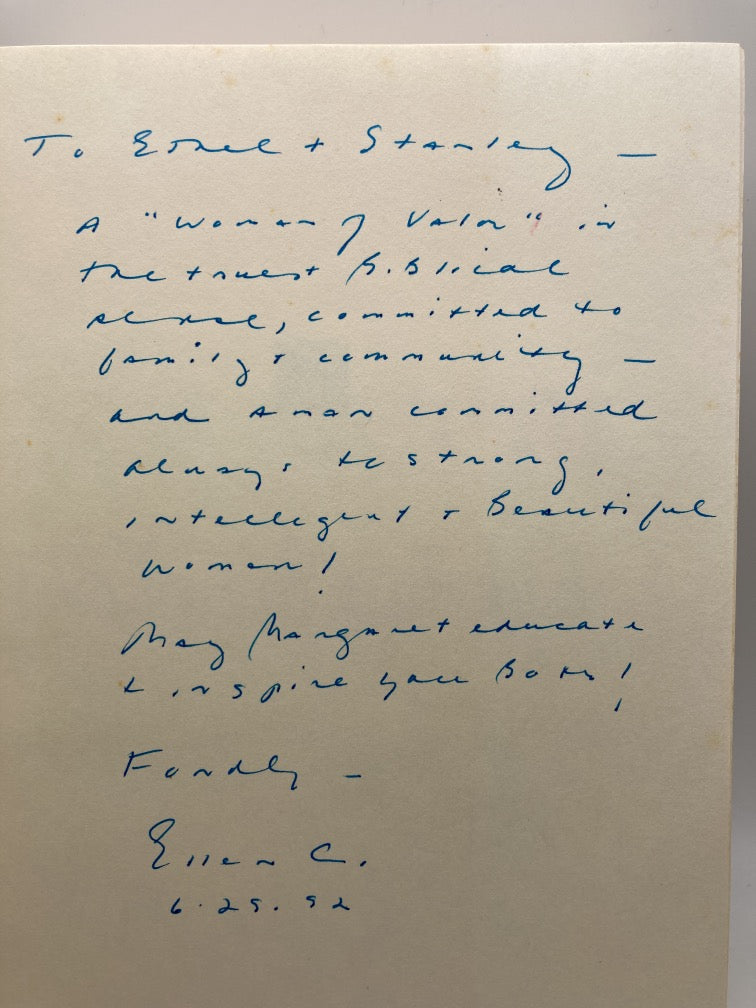 To Ethel + Stanley —
A "Woman of Valor" in
the truest Biblical
sense, committed to
family + community —
and a man committed
always to strong,
intelligent + Beautiful
Women!
May Margaret educate
+ inspire you Both!
Fondly —
Ellen C.
6.29.92